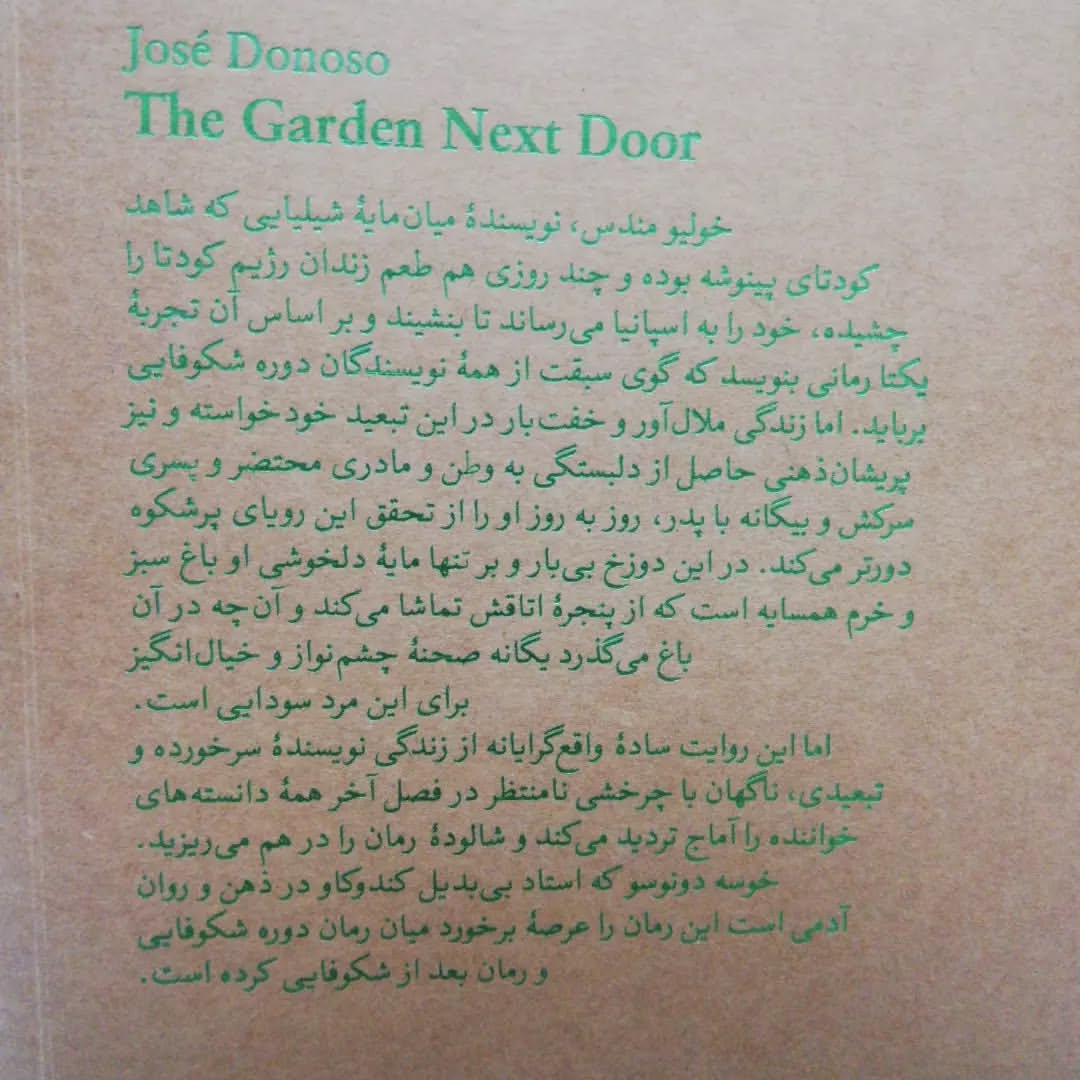 José Donoso
The Garden Next Door
خولیو مندس، نویسندهٔ میان‌مایهٔ شیلیایی که شاهد
کودتای پینوشه بوده و چند روزی هم طعم زندان رژیم کودتا را
چشیده، خود را به اسپانیا می‌رساند تا بنشیند و بر اساس آن تجربهٔ
یکتا رمانی بنویسد که گوی سبقت از همهٔ نویسندگان دوره شکوفایی
برباید. اما زندگی ملال‌آور و خفت‌بار در این تبعید خودخواسته و نیز
پریشان‌ذهنی حاصل از دلبستگی به وطن و مادری محتضر و پسری
سرکش و بیگانه با پدر، روز به روز او را از تحقق این رویای پرشکوه
دورتر می‌کند. در این دوزخ بی‌بار و بر تنها مایهٔ دلخوشی او باغ سبز
و خرم همسایه است که از پنجرهٔ اتاقش تماشا می‌کند و آن‌چه در آن
باغ می‌گذرد یگانه صحنهٔ چشم‌نواز و خیال‌انگیز
برای این مرد سودایی است.
اما این روایت سادهٔ واقع‌گرایانه از زندگی نویسندهٔ سرخورده و
تبعیدی، ناگهان با چرخشی نامنتظر در فصل آخر همهٔ دانسته‌های
خواننده را آماج تردید می‌کند و شالودهٔ رمان را در هم می‌ریزید.
خوسه دونوسو که استاد بی‌بدیل کندوکاو در ذهن و روان
آدمی است این رمان را عرصهٔ برخورد میان رمان دوره شکوفایی
و رمان بعد از شکوفایی کرده است.